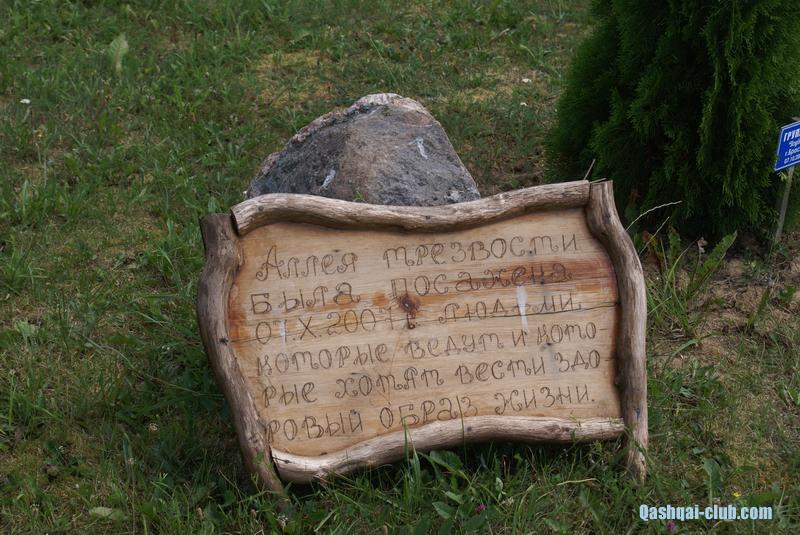 Аллея трезвости
была посажена
07.X.2007г. людьми.
которые ведут и кото
рые хотят вести здо
ровый образ жизни.
ГРУП
07.10.20
Qashqai-club.com